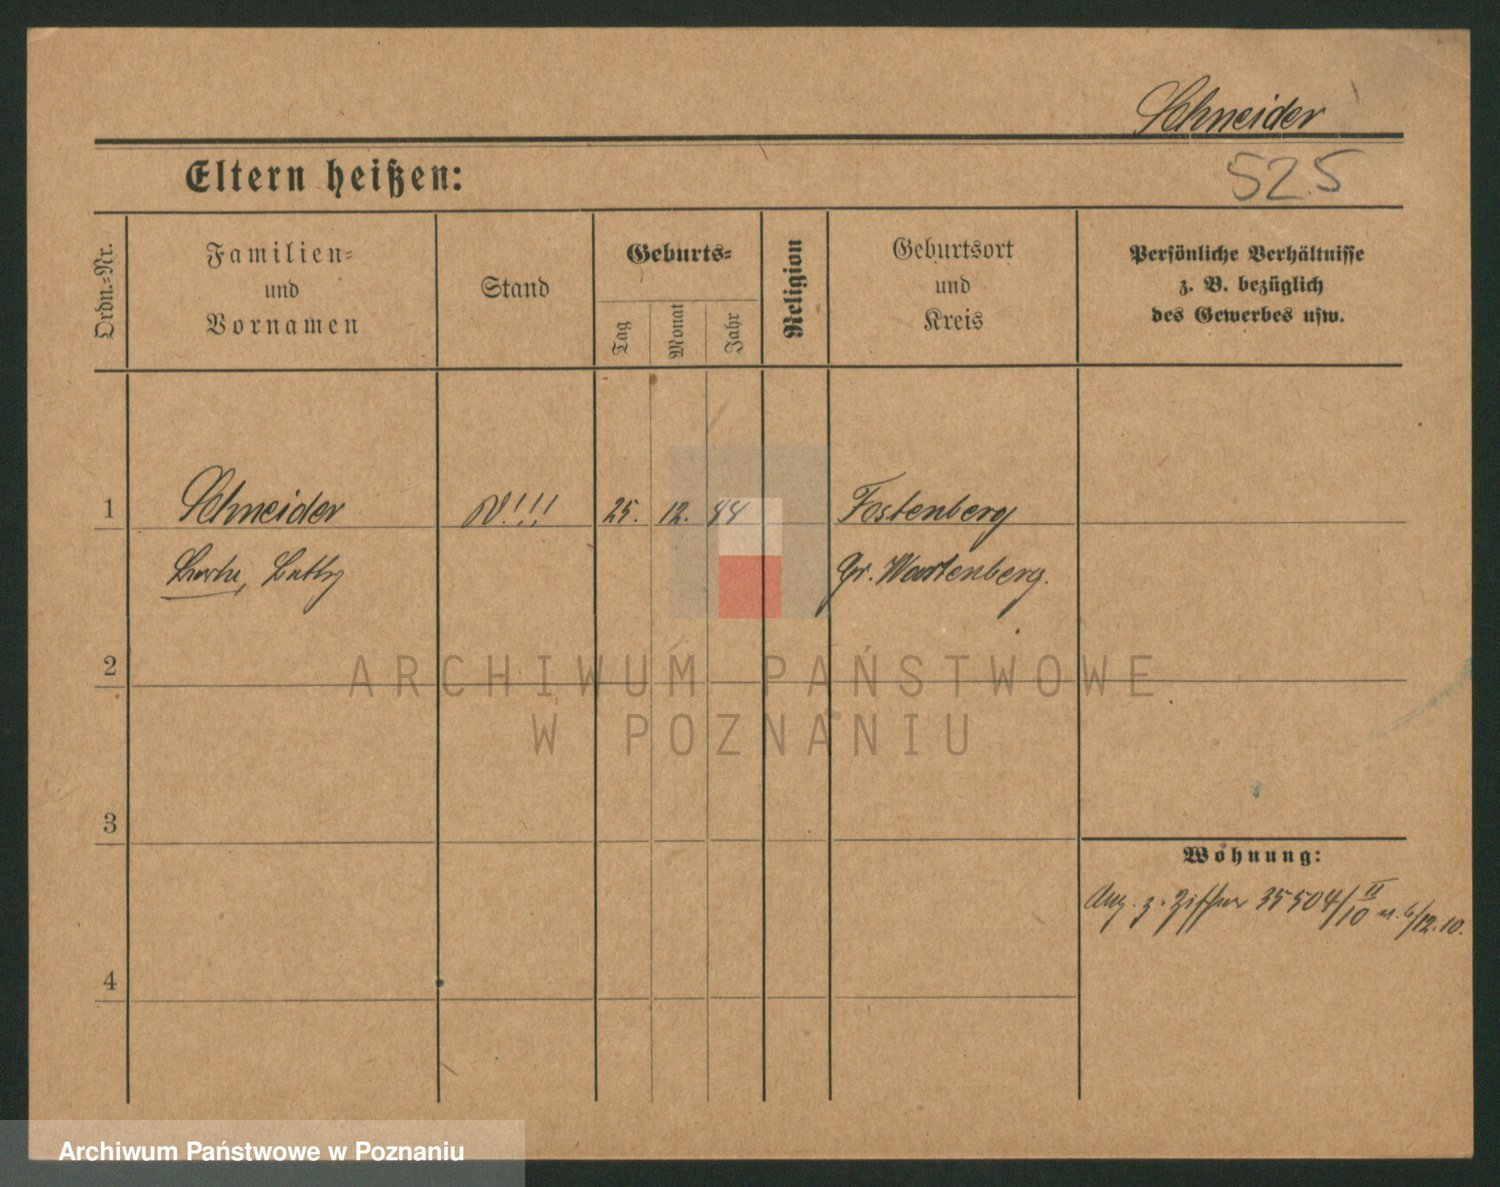 Schneider
Eltern heißen:
525
Ordn.-Nr.
Familien-
und
Vornamen
Stand
Geburts-
Tag
Monat
Jahr
Religion
Geburtsort
und
Kreis
Persönliche Verhältnisse
z. B. bezüglich
des Gewerbes usw.
1
Schneider
25. 12. 44
Fostenberg
Gr. Wartenberg.
2
ARCHIWUM PAŃSTWOWE
W POZNANIU
3
Wohnung:
35504/10
4
Archiwum Państwowe w Poznaniu